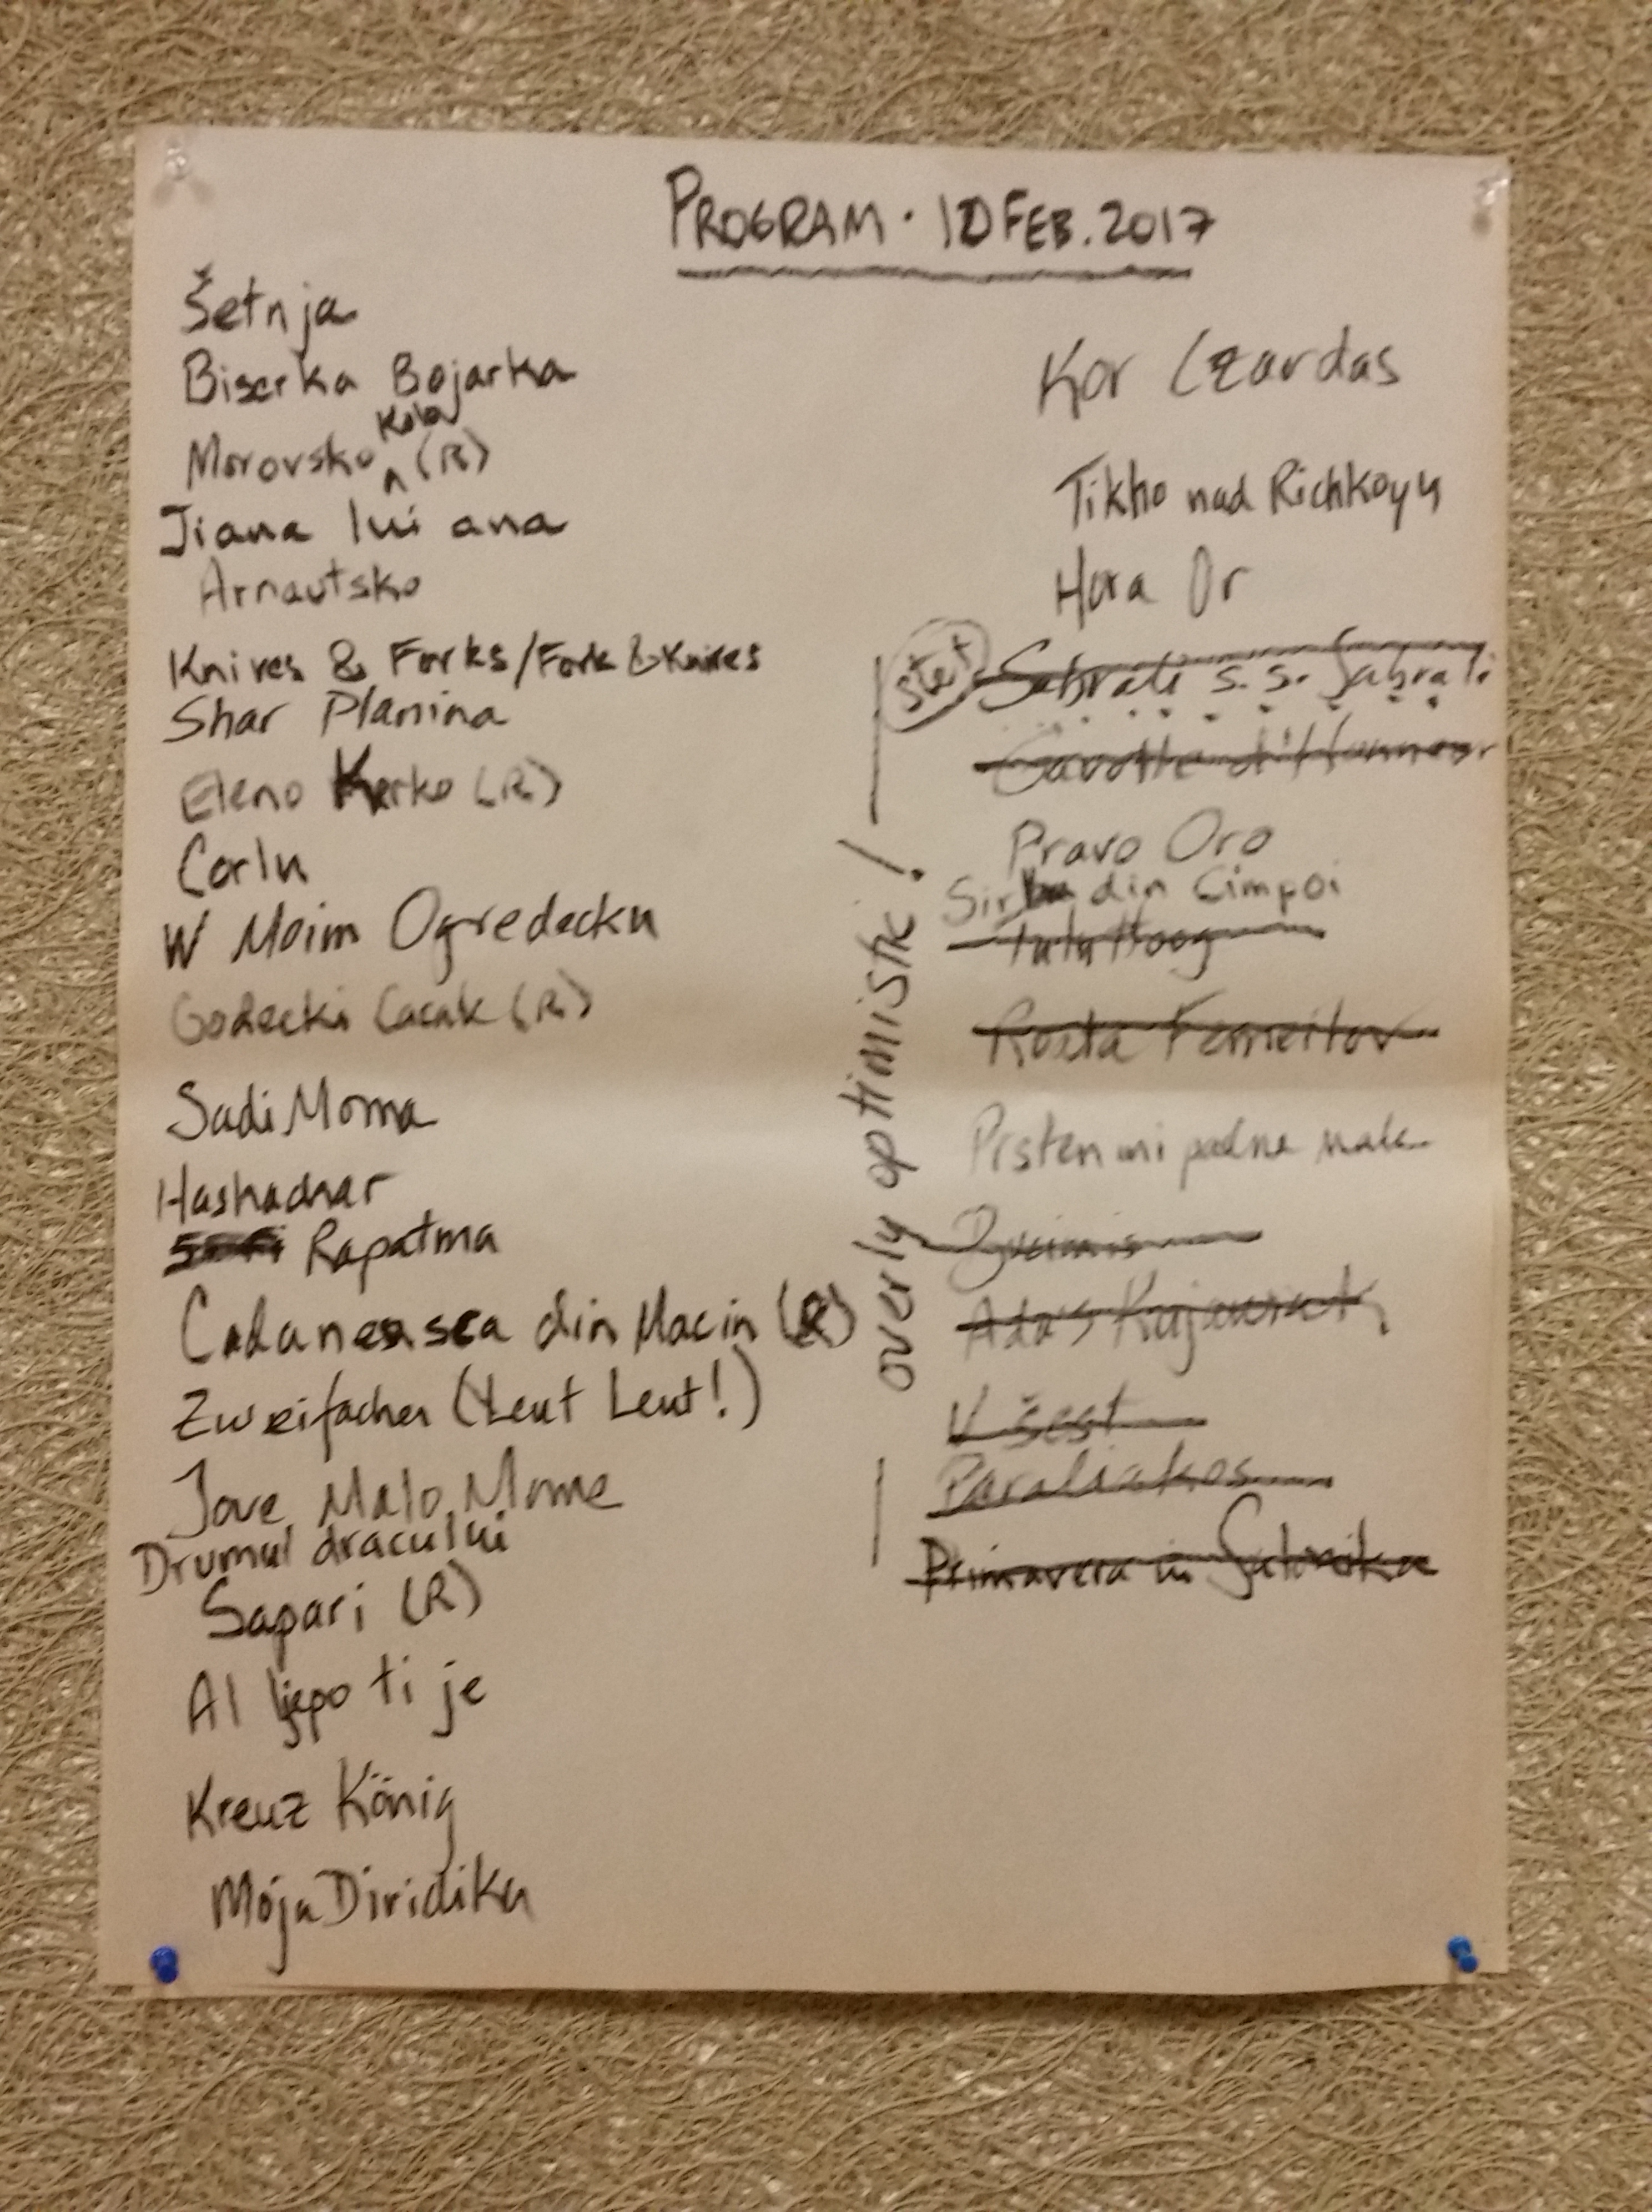 PROGRAM · 10 FEB. 2017
Šetnja
Biserka Bojarka
Morovsko Kolo (R)
Jiana lui ana
Arnautsko
Knives & Forks/Fork & Knives
Shar Planina
Eleno Kerko (R)
Corlu
W Moim Ogredecku
Godecki Cacak (R)
Sadi Moma
Hashachar
Rapatma
Cadaneasca din Macin (R)
Zweifacher (Leut Leut!)
Jove Malo Mome
Drumul dracului
Sapari (R)
Al ljepo ti je
Kreuz König
Moja Diridika
overly optimistic!
Kor Czardas
Tikho nad Richkoyu
Hora Or
stet Sabrali s. s. Sabrali
Gavotte d'Honneur
Pravo Oro
Sirba din Cimpoi
Tulu Hoog
Roata Femeilor
Prsten mi padna male
Bucimis
Ada's Kujawiak
V šest
Paraliakos
Primavera in Salonika